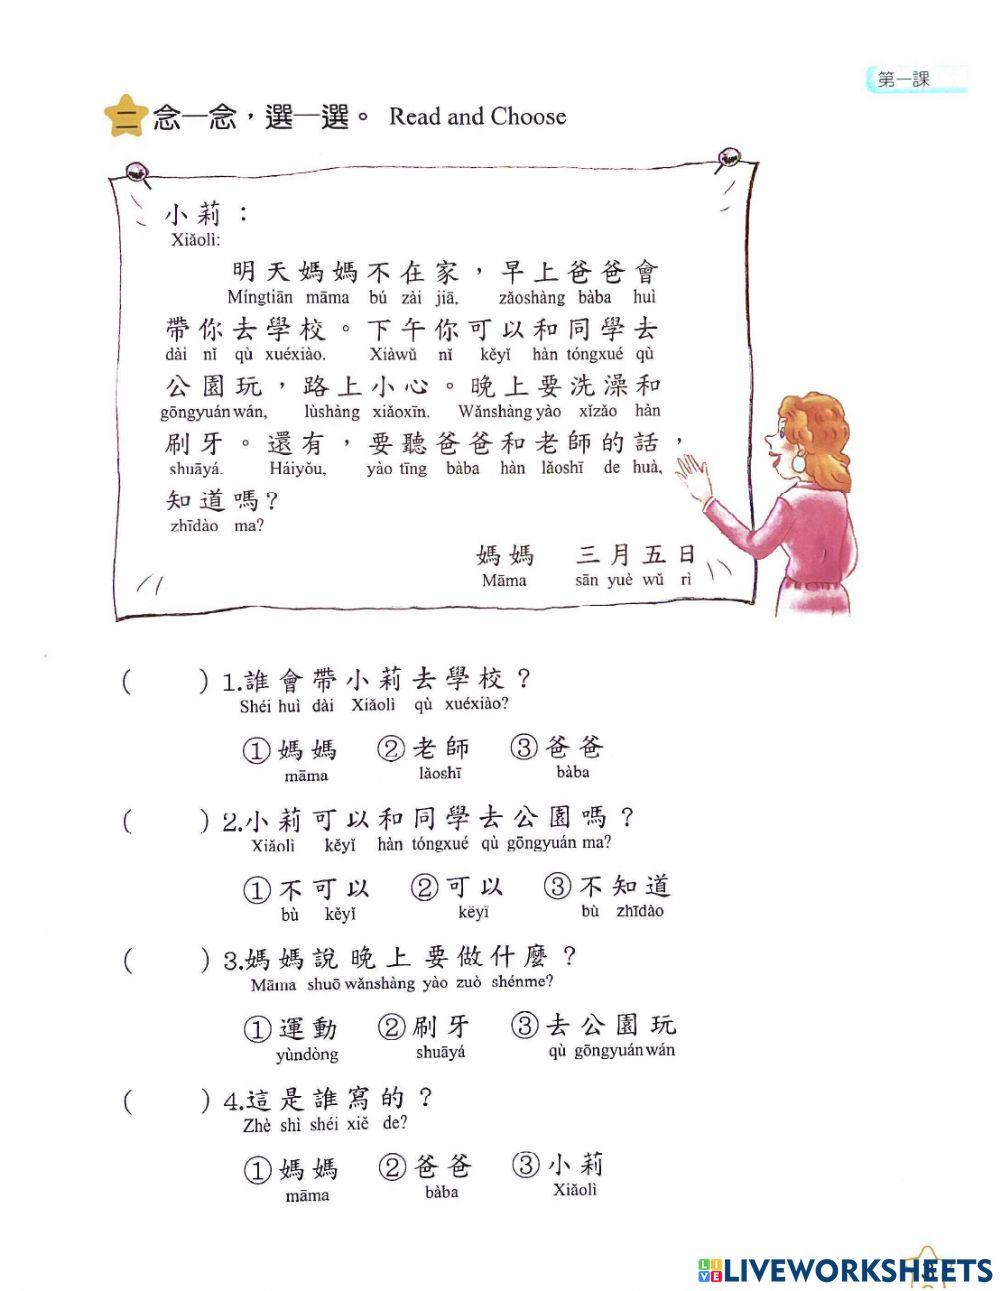 第一課
二 念一念，選一選。 Read and Choose
小莉：
Xiǎolì:
明天媽媽不在家，早上爸爸會
Míngtiān māma bú zài jiā, zǎoshàng bàba huì
帶你去學校。下午你可以和同學去
dài nǐ qù xuéxiào. Xiàwǔ nǐ kěyǐ hàn tóngxué qù
公園玩，路上小心。晚上要洗澡和
gōngyuán wán, lùshàng xiǎoxīn. Wǎnshàng yào xǐzǎo hàn
刷牙。還有，要聽爸爸和老師的話，
shuāyá. Háiyǒu, yào tīng bàba hàn lǎoshī de huà,
知道嗎？
zhīdào ma?
媽媽 三月五日
Māma sān yuè wǔ rì
( ) 1.誰會帶小莉去學校？
Shéi huì dài Xiǎolì qù xuéxiào?
①媽媽 ②老師 ③爸爸
māma lǎoshī bàba
( ) 2.小莉可以和同學去公園嗎？
Xiǎolì kěyǐ hàn tóngxué qù gōngyuán ma?
①不可以 ②可以 ③不知道
bù kěyǐ kěyǐ bù zhīdào
( ) 3.媽媽說晚上要做什麼？
Māma shuō wǎnshàng yào zuò shénme?
①運動 ②刷牙 ③去公園玩
yùndòng shuāyá qù gōngyuán wán
( ) 4.這是誰寫的？
Zhè shì shéi xiě de?
①媽媽 ②爸爸 ③小莉
māma bàba Xiǎolì
LIVE LIVEWORKSHEETS